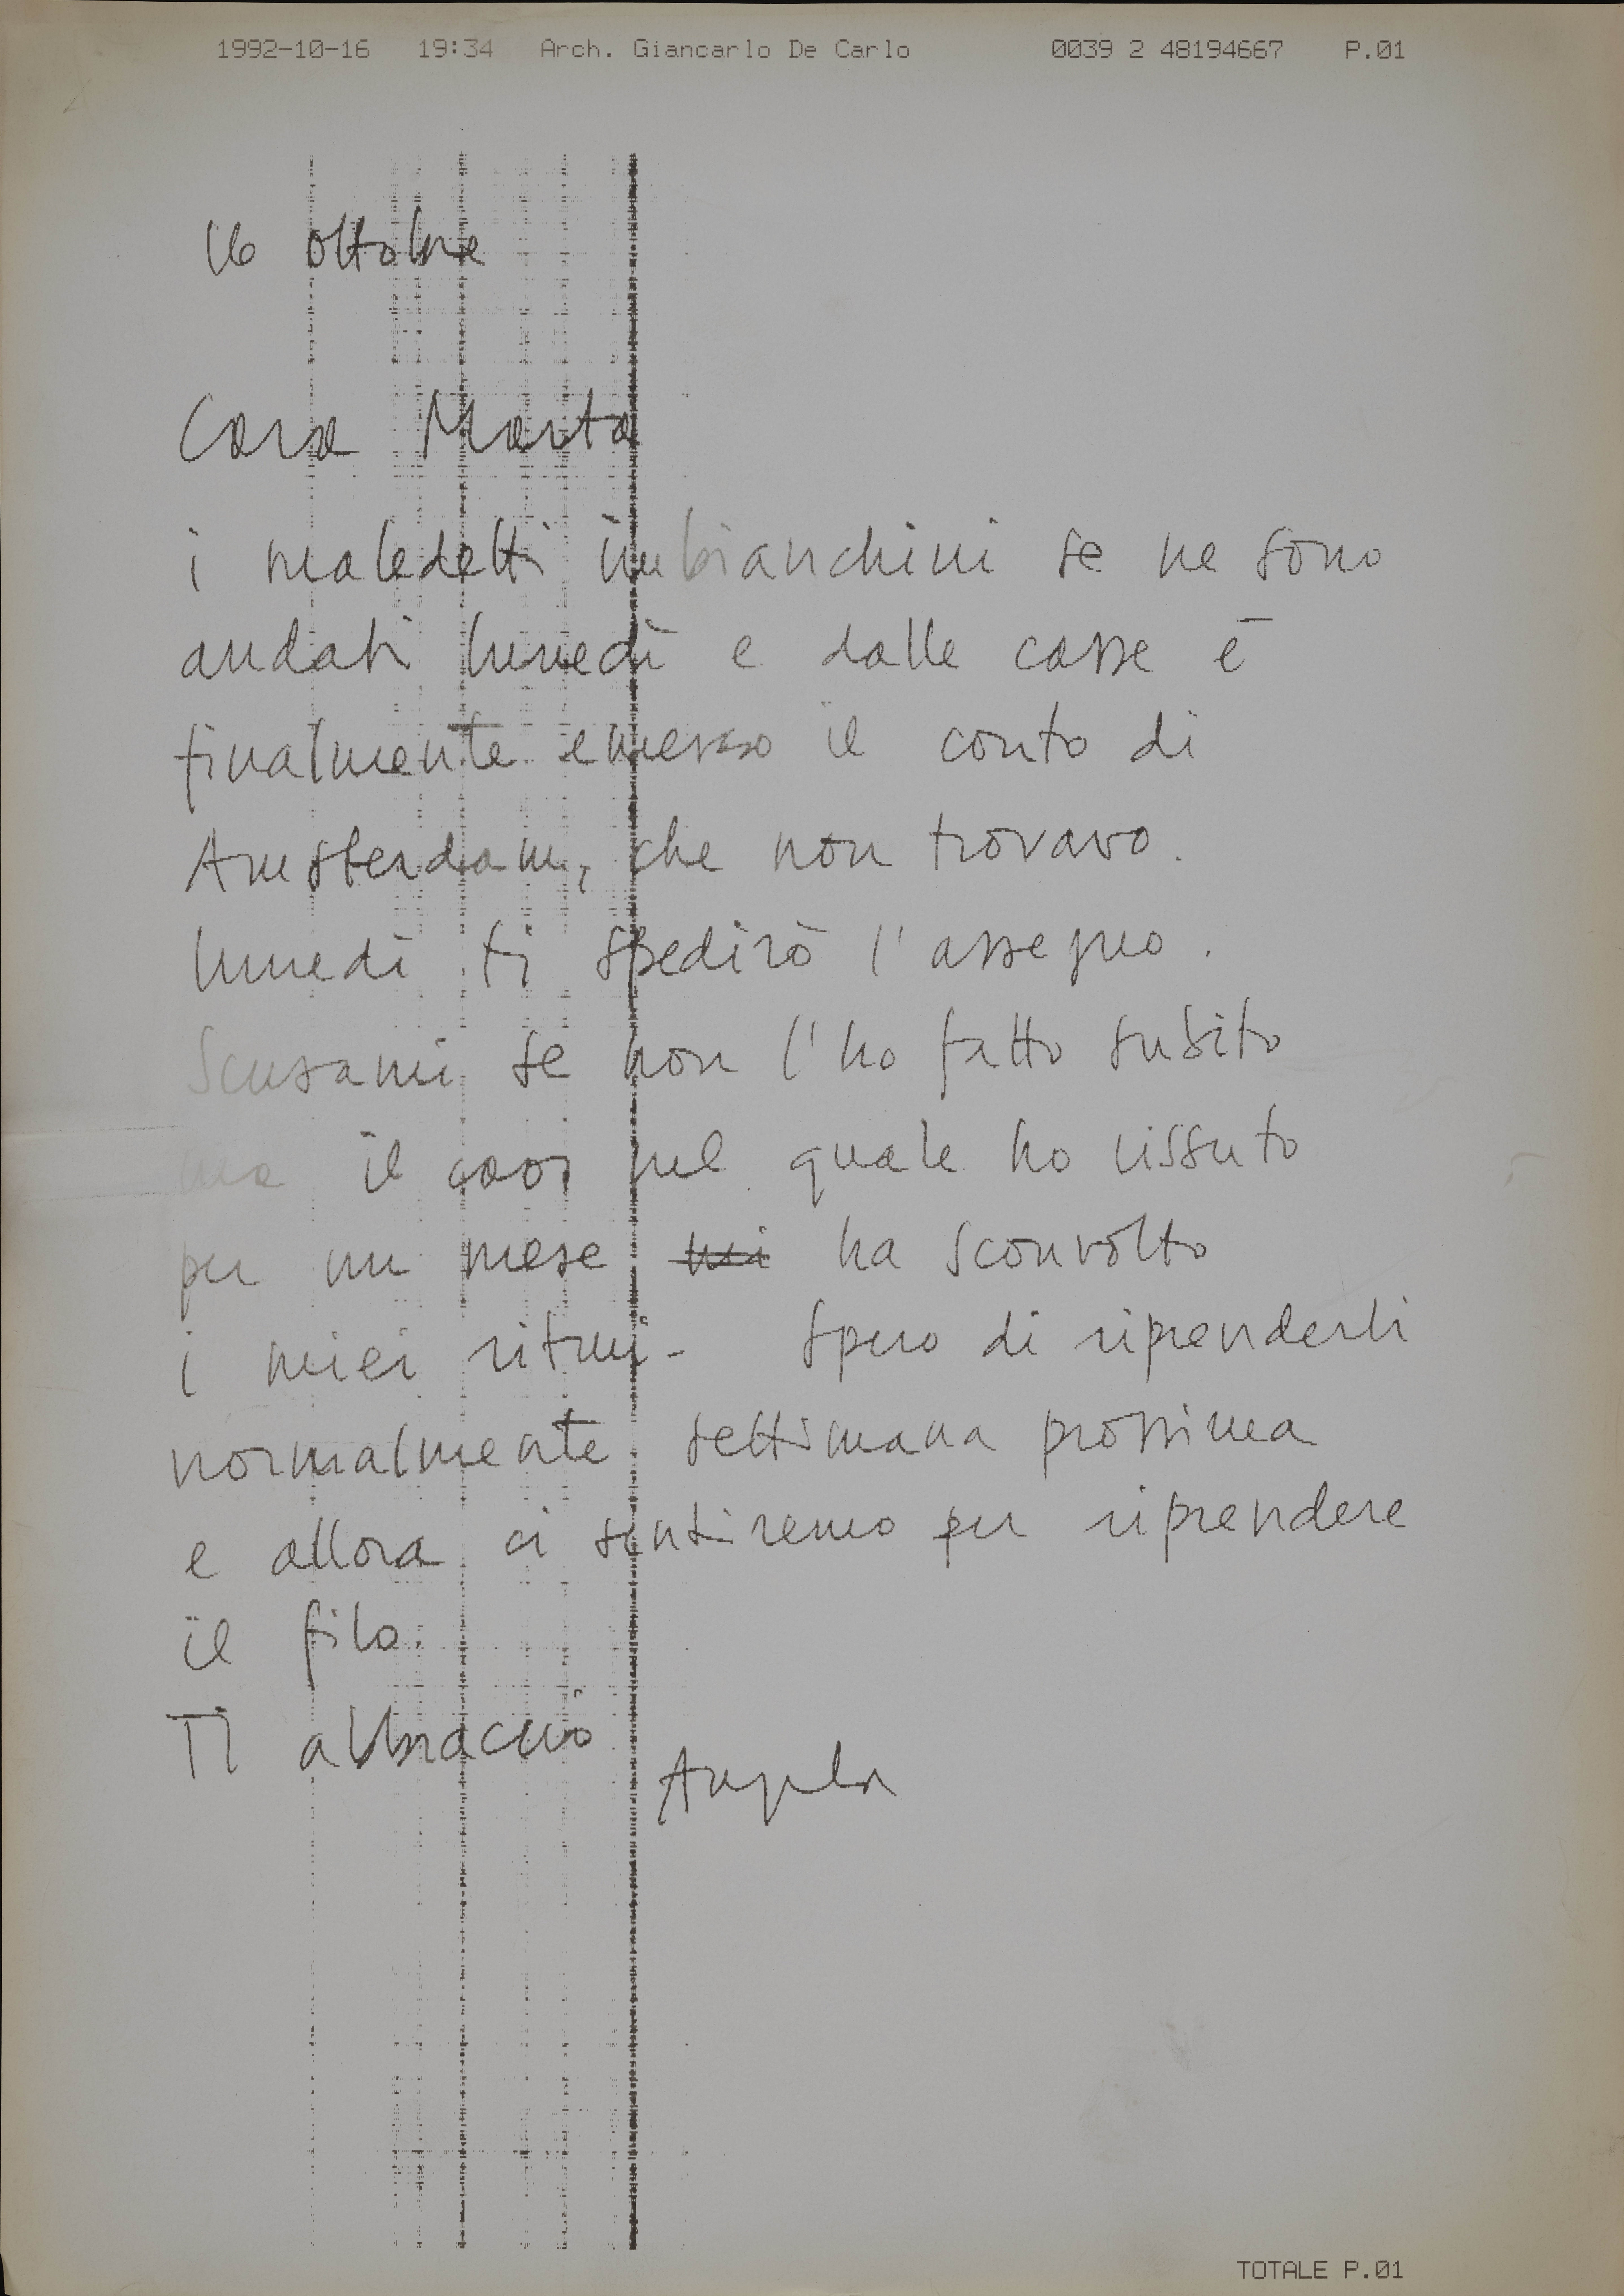 1992-10-16 19:34 Arch. Giancarlo De Carlo 0039 2 48194667 P.01
16 ottobre
Cara Marta
i maledetti imbianchini se ne sono
andati lunedì e dalle casse è
finalmente emerso il conto di
Amsterdam, che non trovavo.
lunedì ti spedirò l'assegno.
Scusami se non l'ho fatto subito
ma il caos nel quale ho vissuto
per un mese mi ha sconvolto
i miei ritmi- Spero di riprenderli
normalmente settimana prossima
e allora ci sentiremo per riprendere
il filo.
Ti abbraccio
Angela
TOTALE P.01